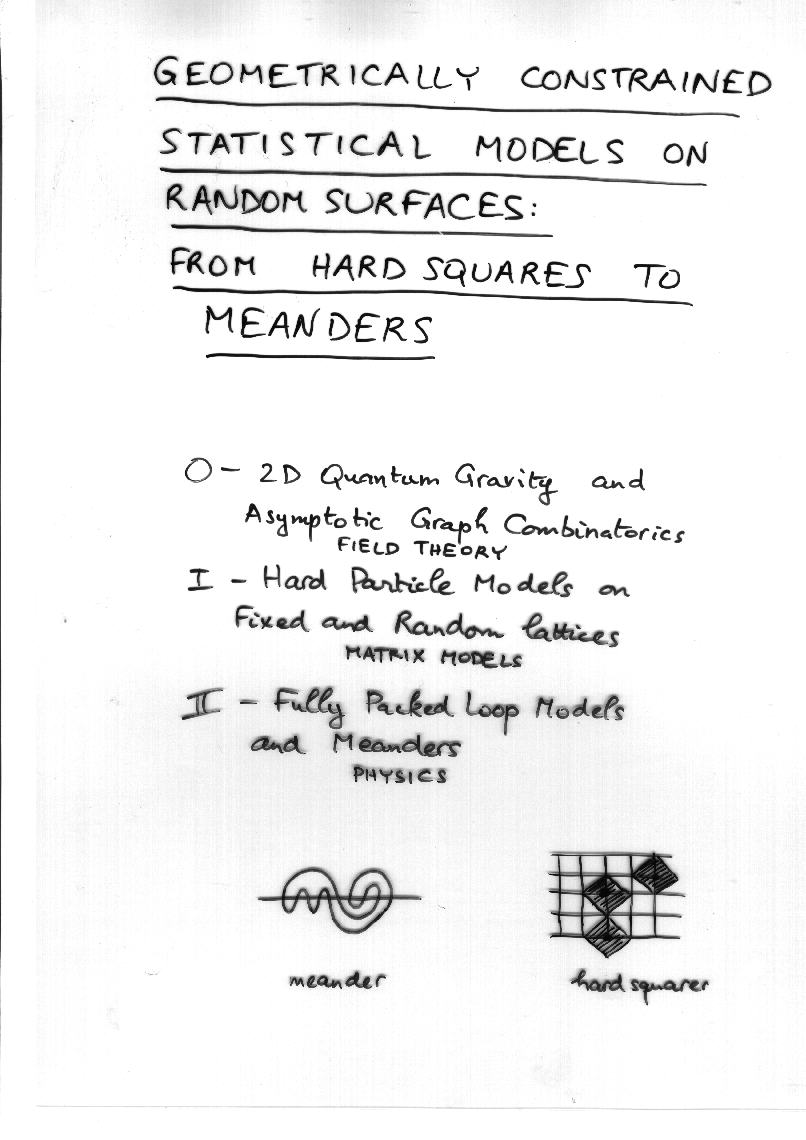 GEOMETRICALLY CONSTRAINED
STATISTICAL MODELS ON
RANDOM SURFACES:
FROM HARD SQUARES TO
MEANDERS
0 - 2D Quantum Gravity and
Asymptotic Graph Combinatorics
FIELD THEORY
I - Hard Particle Models on
Fixed and Random lattices
MATRIX MODELS
II - Fully Packed Loop Models
and Meanders
PHYSICS
meander
hard squares